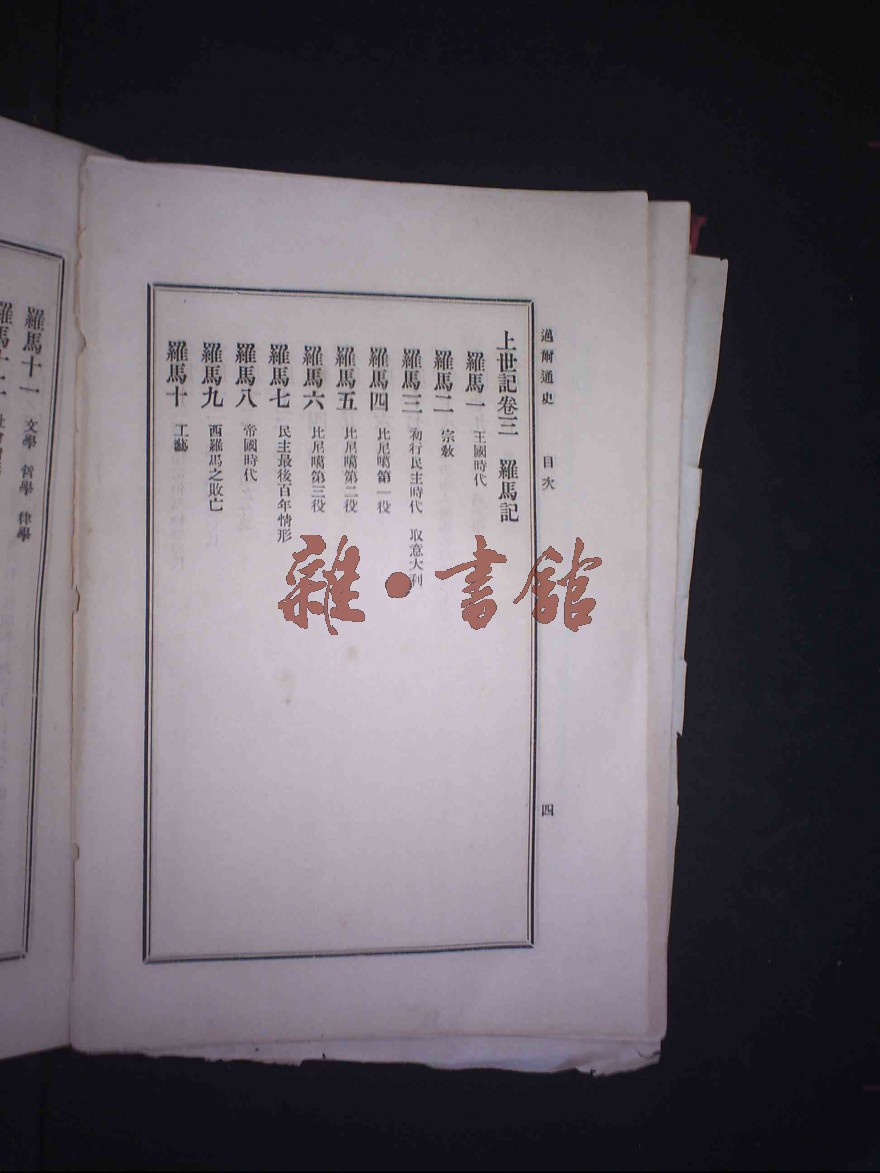 邁爾通史 目次 四
上世記卷三 羅馬記
羅馬一 王國時代
羅馬二 宗敎
羅馬三 初行民主時代 取意大利
羅馬四 比尼噶第一役
羅馬五 比尼噶第二役
羅馬六 比尼噶第三役
羅馬七 民主最後百年情形
羅馬八 帝國時代
羅馬九 西羅馬之敗亡
羅馬十 工藝
羅馬十一 文學 哲學 律學
羅馬十二
雜·書館